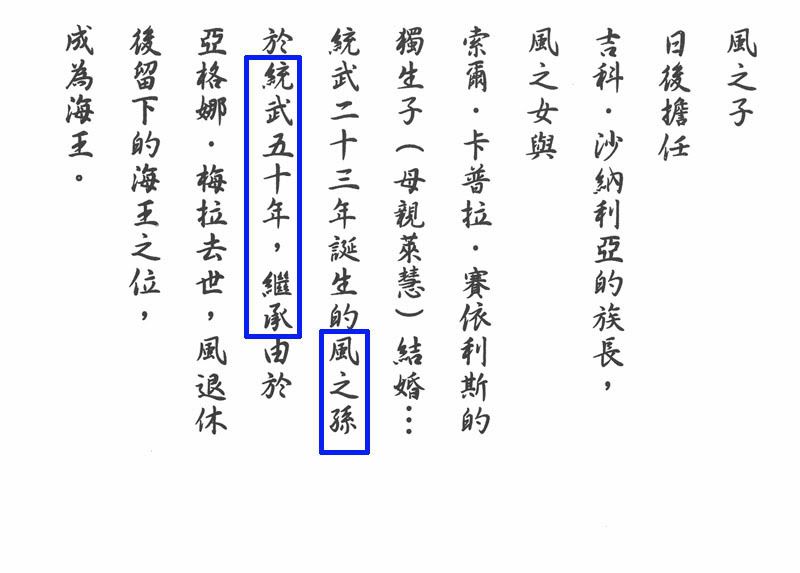 風之子
日後擔任
吉科・沙納利亞的族長，
風之女與
索爾・卡普拉・賽依利斯的
獨生子（母親萊慧）結婚…
統武二十三年誕生的風之孫
於統武五十年，繼承由於
亞格娜・梅拉去世，風退休
後留下的海王之位，
成為海王。